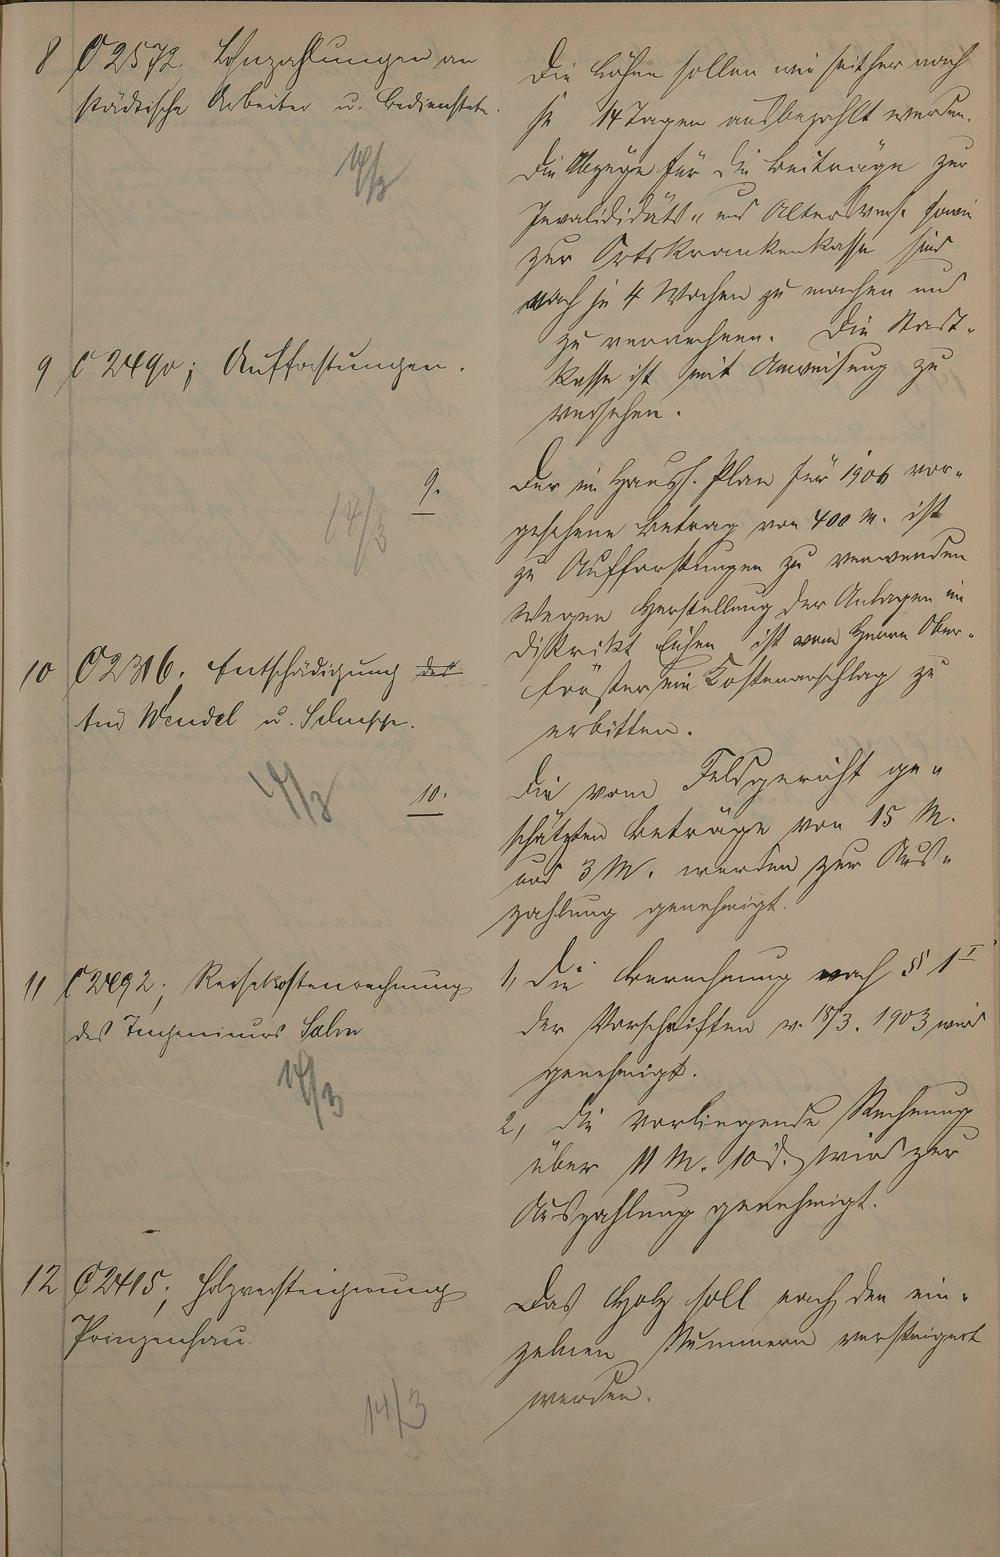 8 C 2572. Lohnzahlungen an
städtische Arbeiter u. Bedienstete.
14/3
Die Löhne sollen wie seither nach
je 14 Tagen ausbezahlt werden.
Die Abzüge für die Beiträge zur
Invalididäts- und Altersvers. sowie
zur Ortskrankenkasse sind
nach je 4 Wochen zu machen und
zu verrechnen. Die Stadt-
kasse ist mit Anweisung zu
versehen.
9 C 2490; Aufforstungen.
14/3
9.
Der im Haush. Plan für 1906 vor-
gesehene Betrag von 400 M. ist
zu Aufforstungen zu verwenden
Wegen Herstellung der Anlagen im
Distrikt Eichen ist vom Herrn Ober-
förster ein Kostenanschlag zu
erbitten.
10 C 2316; Entschädigung der
Wendel u.
14/3
10.
Die vom Feldgericht ge-
schätzten Beträge von 15 M.
und 3 M. werden zur Aus-
zahlung genehmigt.
11 C 2492; Reisekostenrechnung
des Ingenieurs Salm
14/3
1, Die Berechnung nach § 1 I
der Vorschriften v. 18/3. 1903 wird
genehmigt.
2, die vorliegende Rechnung
über 11 M. 10 d. wird zur
Auszahlung genehmigt.
12 C 2415; Holzversteigerung
Prinzenhau.
14/3
Das Holz soll nach den ein-
zelnen Nummern versteigert
werden.